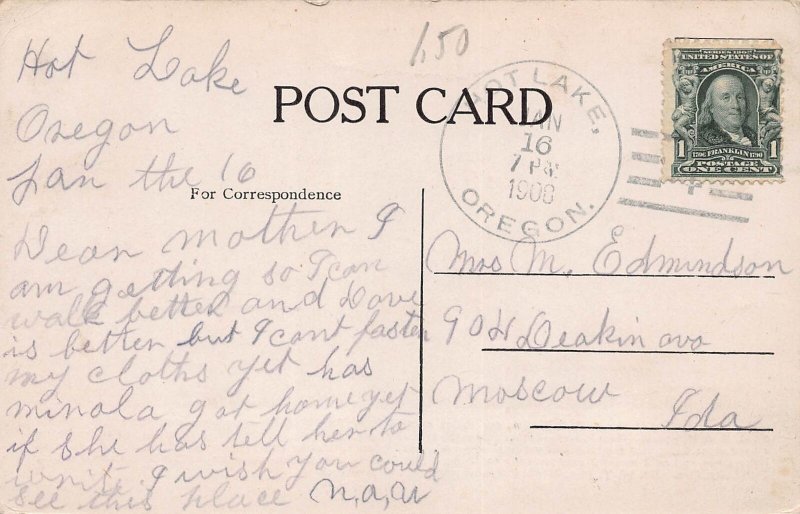 1,50
Hot Lake
Oregon
Jan the 16
POST CARD
For Correspondence
HOT LAKE,
JAN
16
7 PM
1908
OREGON.
SERIES 1902
UNITED STATES OF
AMERICA
1 FRANKLIN 1
POSTAGE
ONE CENT
Dear mother I
am getting so I can
walk better and Dove
is better but I cant fasten
my cloths yet has
minola got home yet
if she has tell her to
write I wish you could
see this place N,a,U
Mrs M, Edmindson
904 Deakin ava
Moscow
Ida